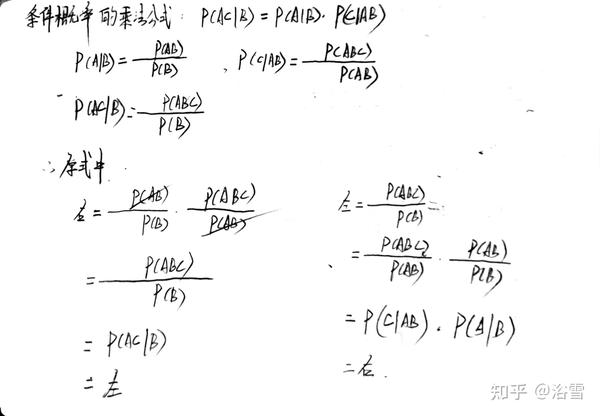 条件概率的乘法公式: P(AC|B) = P(A|B)·P(C|AB)
P(A|B) = P(AB)/P(B) , P(C|AB) = P(ABC)/P(AB)
P(AC|B) = P(ABC)/P(B)
∴ 原式中
右 = P(AB)/P(B) · P(ABC)/P(AB)
= P(ABC)/P(B)
= P(AC|B)
= 左
左 = P(ABC)/P(B) =
= P(ABC)/P(AB) · P(AB)/P(B)
= P(C|AB) · P(A|B)
= 右.
知乎 @浴雪